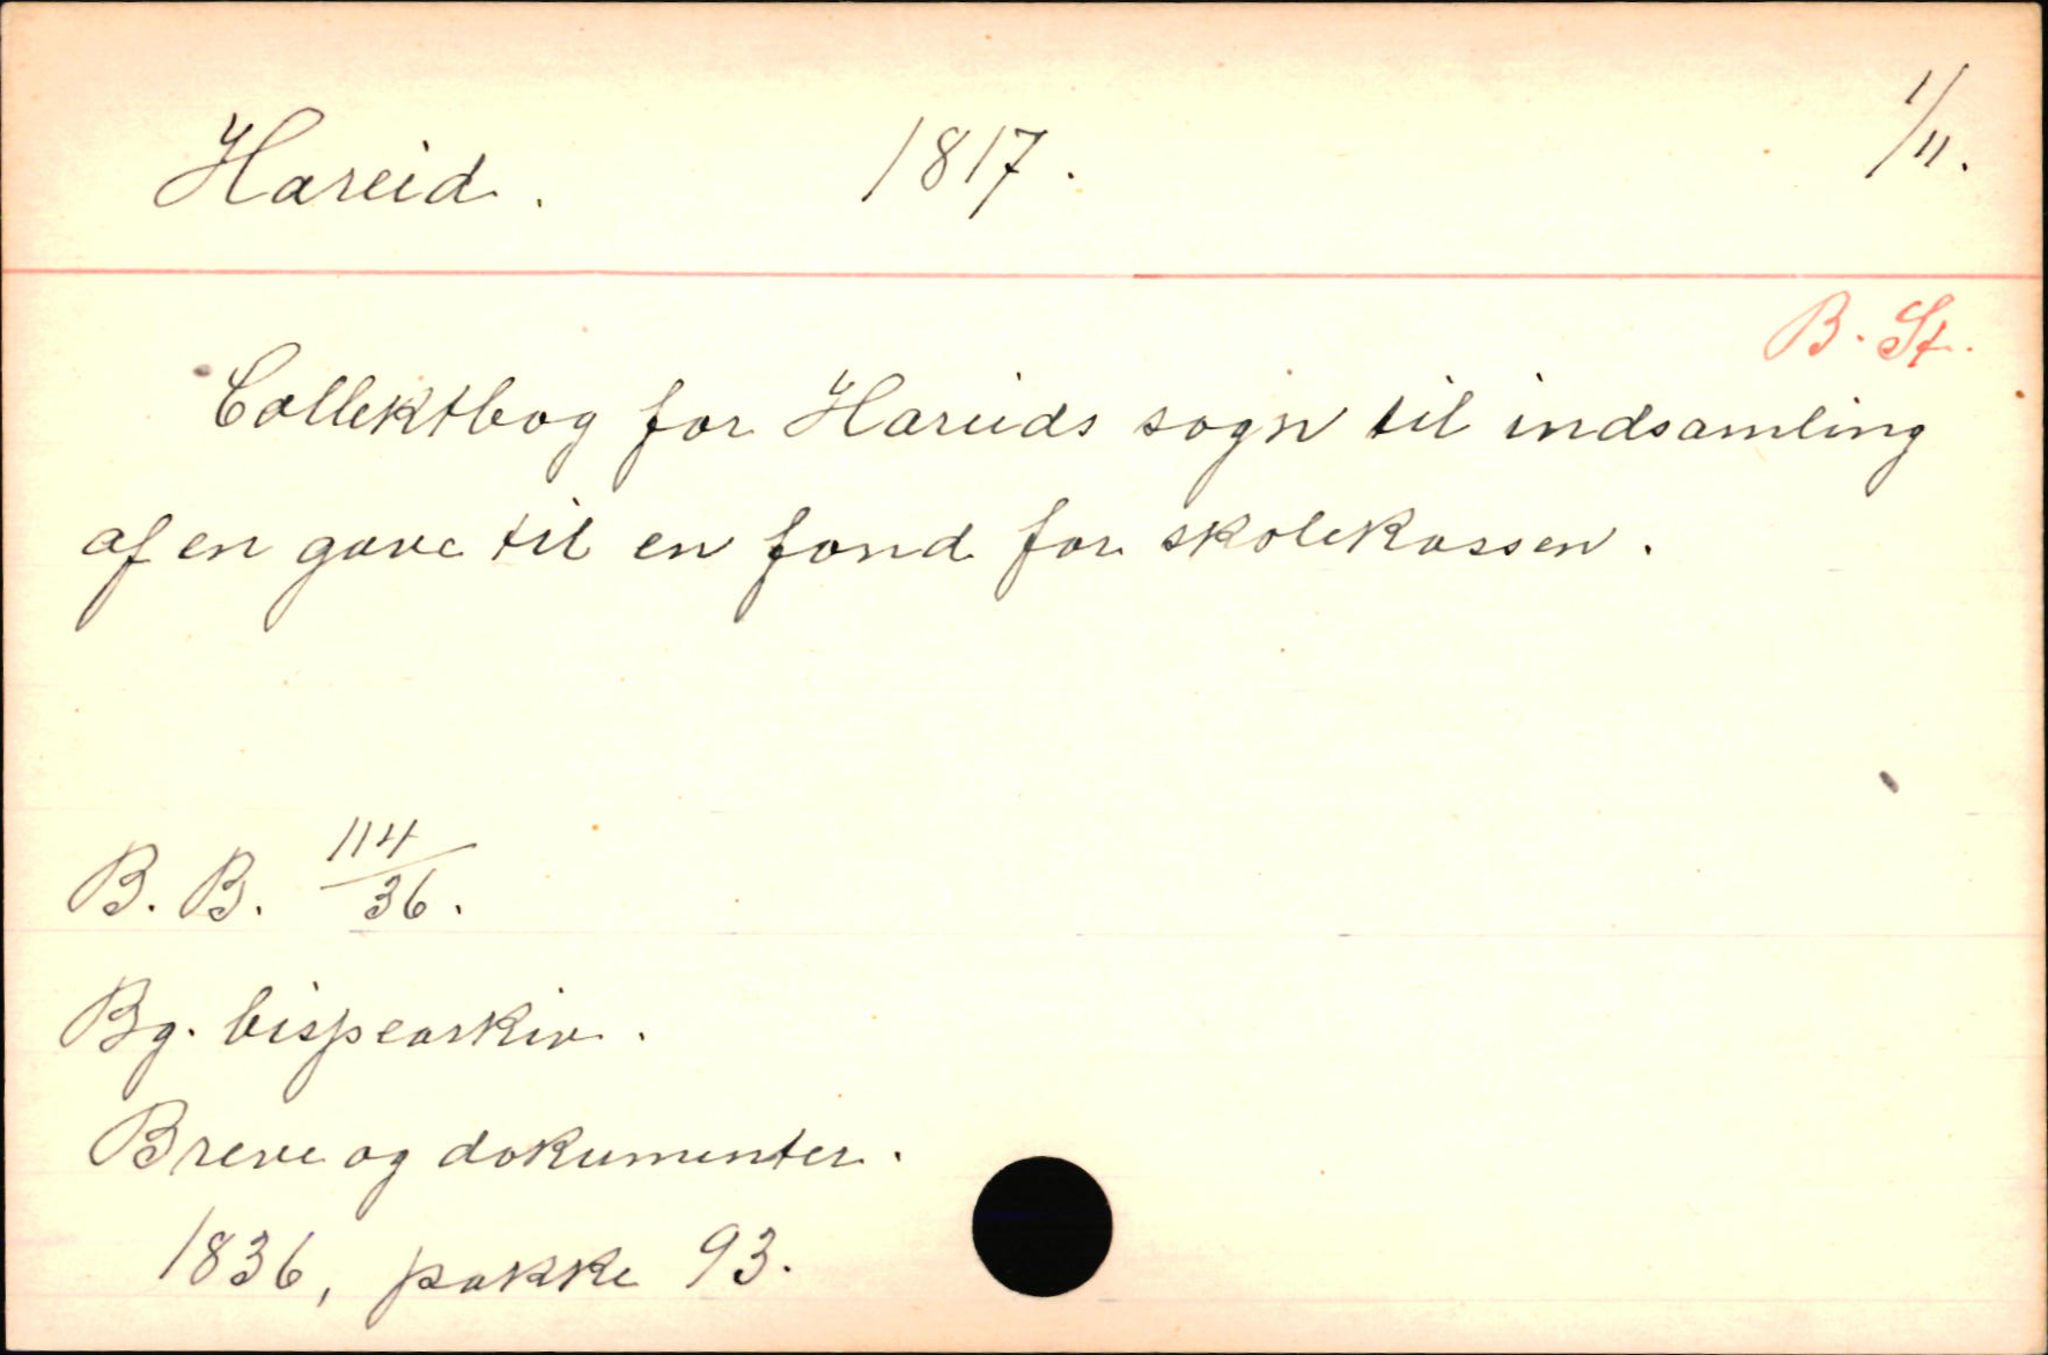 Hareid. 1817. 1/11.
B. St.
Collektbog for Hareids sogn til indsamling
af en gave til en fond for skolekassen.
B. B. 114/36.
Bg. bispearkiv.
Breve og dokumenter.
1836, pakke 93.